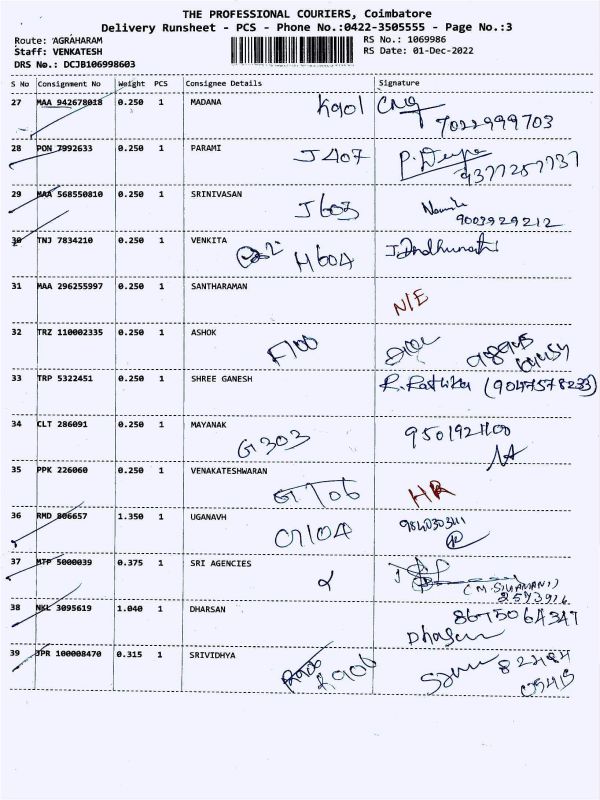 THE PROFESSIONAL COURIERS, Coimbatore
Delivery Runsheet - PCS - Phone No.:0422-3505555 - Page No.:3
Route: AGRAHARAM RS No.: 1069986
Staff: VENKATESH RS Date: 01-Dec-2022
DRS No.: DCJB106998603
S No Consignment No Weight PCS Consignee Details Signature
27 MAA 942678018 0.250 1 MADANA K901
7022999703
28 PON 7992633 0.250 1 PARAMI J407
9377257737
29 MAA 568550810 0.250 1 SRINIVASAN J603
9003929212
30 TNJ 7834210 0.250 1 VENKITA H604
31 MAA 296255997 0.250 1 SANTHARAMAN N/E
32 TRZ 110002335 0.250 1 ASHOK F100
33 TRP 5322451 0.250 1 SHREE GANESH R. Rathika (9047578233)
34 CLT 286091 0.250 1 MAYANAK G303
35 PPK 226060 0.250 1 VENAKATESHWARAN G706 HR
36 RMD 806657 1.350 1 UGANAVH
37 MTP 5000039 0.375 1 SRI AGENCIES
38 NKL 3095619 1.040 1 DHARSAN 8675064347
Dharsan
39 JPR 100008470 0.315 1 SRIVIDHYA